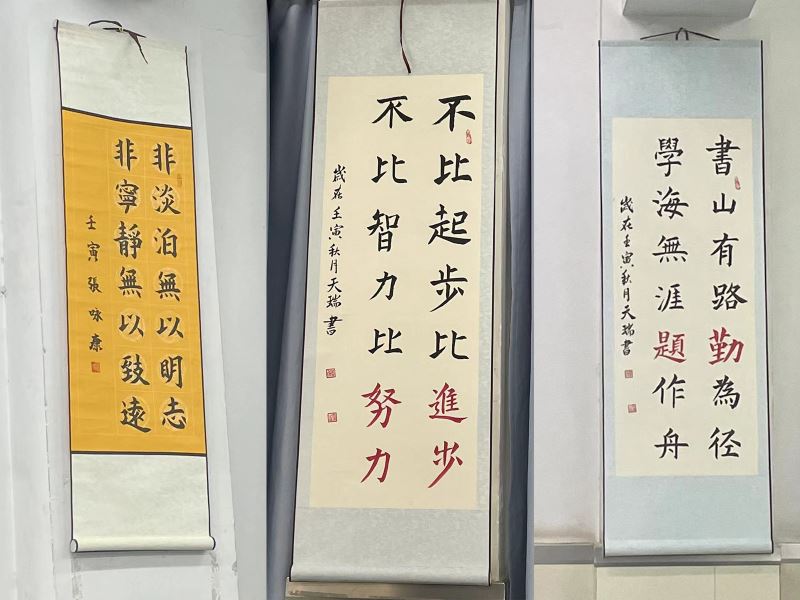 非淡泊無以明志
非寧靜無以致遠
壬寅張咏康
不比起步比進步
不比智力比努力
歲在壬寅秋月天瑞書
書山有路勤為径
學海無涯題作舟
歲在壬寅秋月天瑞書